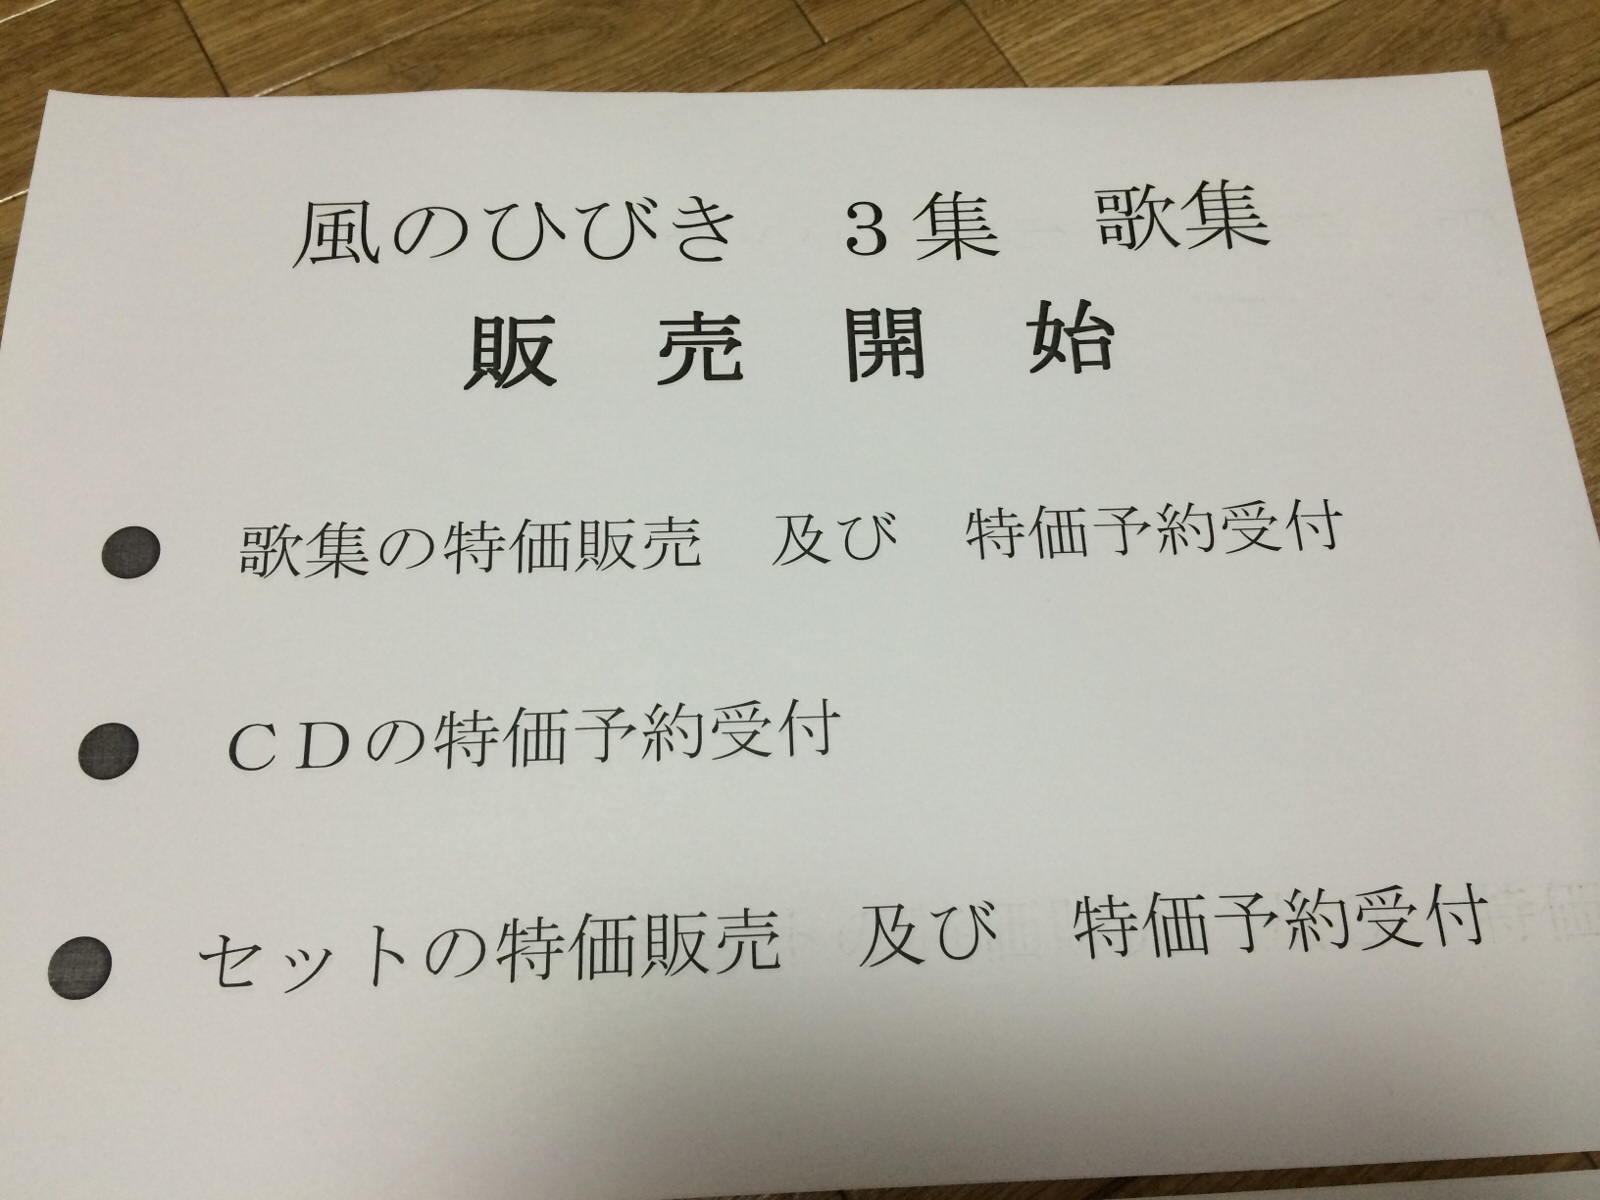 風のひびき　３集　歌集
販　売　開　始
●　歌集の特価販売　及び　特価予約受付
●　ＣＤの特価予約受付
●　セットの特価販売　及び　特価予約受付